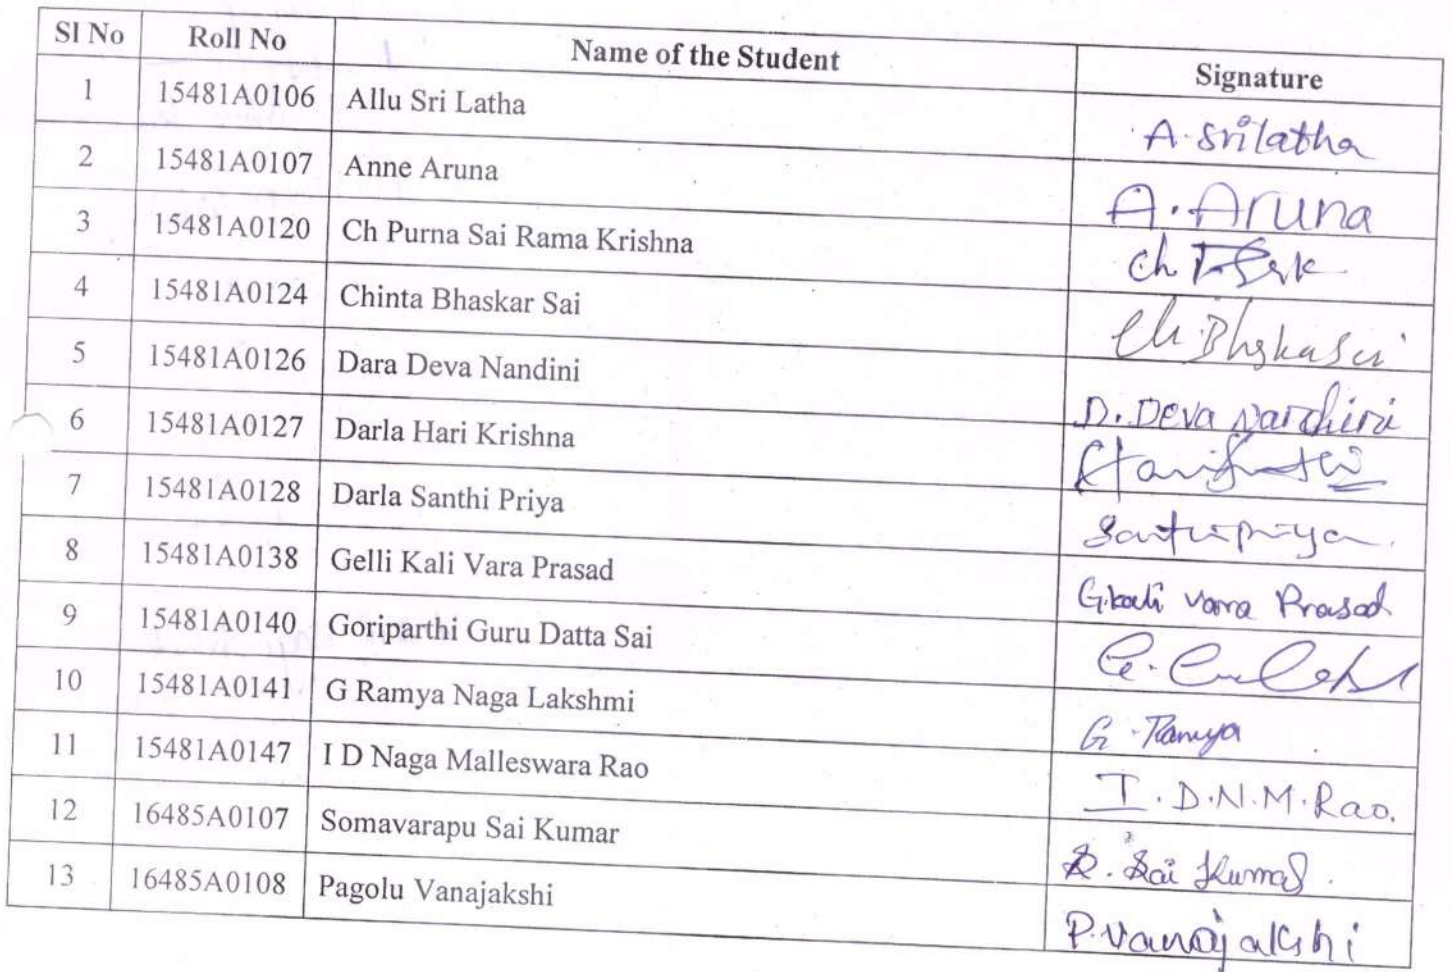 Sl No Roll No Name of the Student Signature
1 15481A0106 Allu Sri Latha A. Srilatha
2 15481A0107 Anne Aruna A. Aruna
3 15481A0120 Ch Purna Sai Rama Krishna Ch
4 15481A0124 Chinta Bhaskar Sai Ch. Bhaskar Sai
5 15481A0126 Dara Deva Nandini D. Deva Nandini
6 15481A0127 Darla Hari Krishna
7 15481A0128 Darla Santhi Priya Santhipriya.
8 15481A0138 Gelli Kali Vara Prasad G. Kali Vara Prasad
9 15481A0140 Goriparthi Guru Datta Sai G.
10 15481A0141 G Ramya Naga Lakshmi G. Ramya
11 15481A0147 I D Naga Malleswara Rao I. D.N.M. Rao.
12 16485A0107 Somavarapu Sai Kumar S. Sai Kumar.
13 16485A0108 Pagolu Vanajakshi P. Vanajakshi